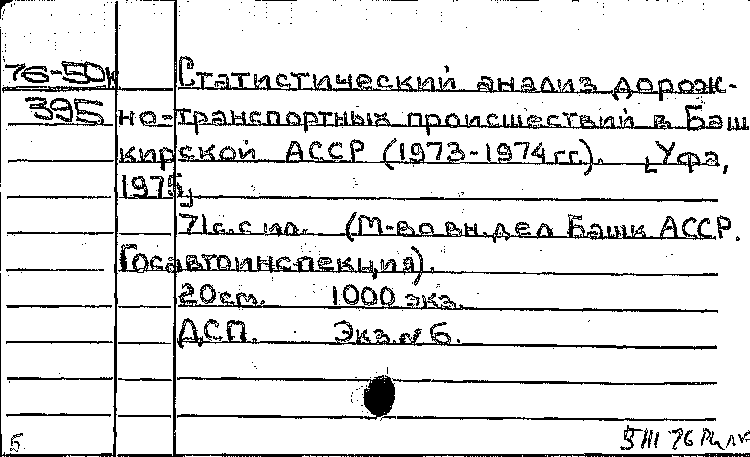 76-50к Статистический анализ дорож-
395 но-транспортных происшествий в Баш
кирской АССР (1973-1974 гг.). [Уфа,
1975]
71с. с ил. (М-во вн. дел Башк АССР.
Госавтоинспекция).
20см. 1000 экз.
ДСП. Экз. № 6.
5 III 76